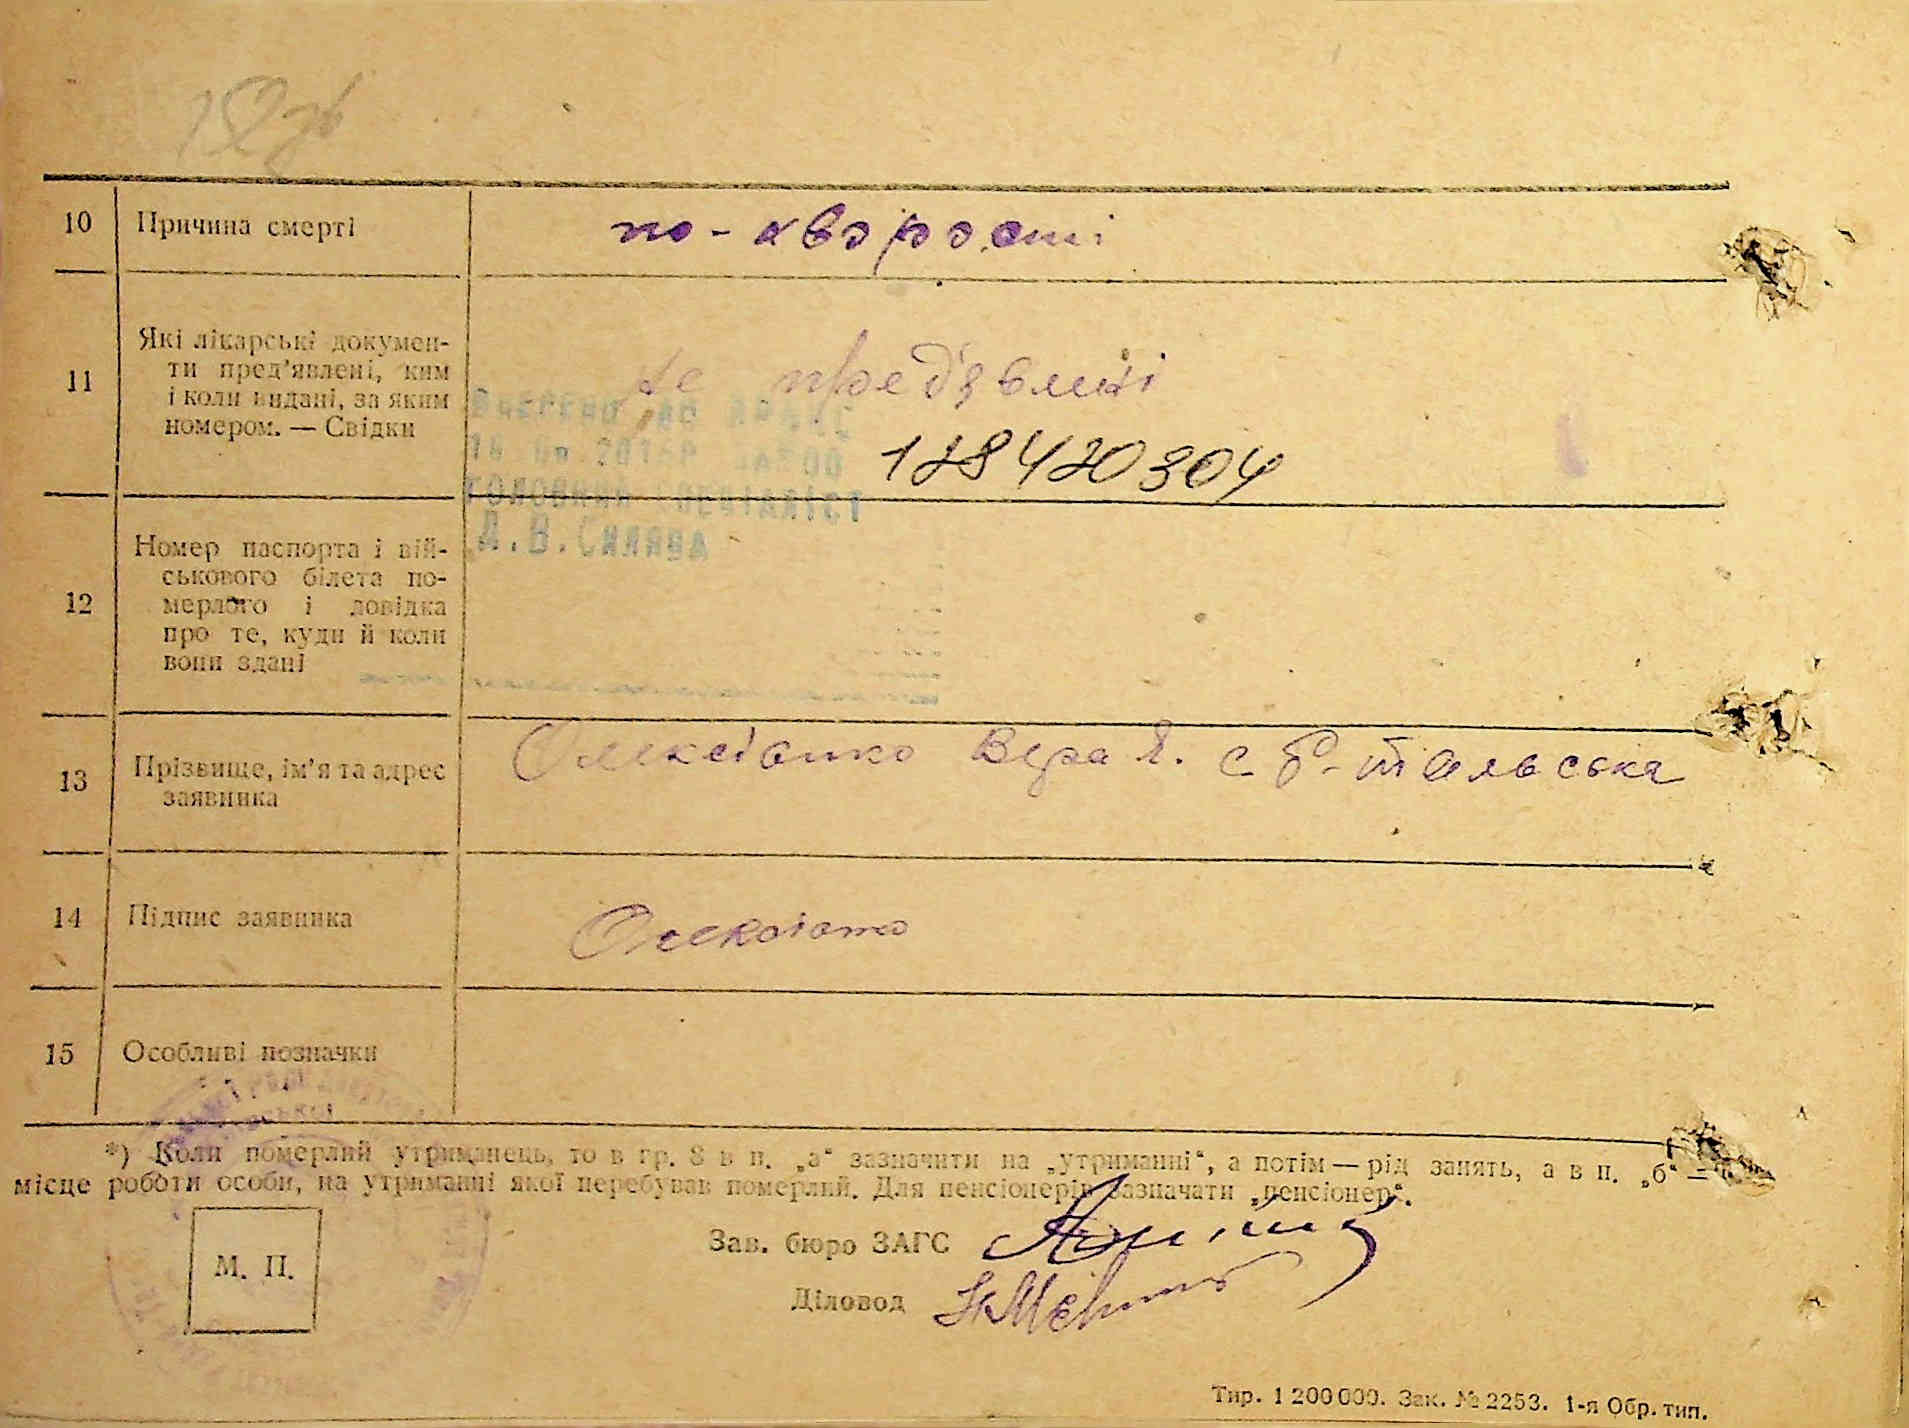 10 Причина смерті по-хворости
11 Які лікарські докумен-
ти пред'явлені, ким
і коли видані, за яким
номером. — Свідки
не предявлені
128420304
ВНЕСЕНО ДО ДРАЦС
ГОЛОВНИЙ СПЕЦІАЛІСТ
12 Номер паспорта і вій-
ськового білета по-
мерлого і довідка
про те, куди й коли
вони здані
13 Прізвище, ім'я та адрес
заявника
Олексієнко Вера Я. с.
14 Підпис заявника
15 Особливі позначки
*) Коли померлий утриманець, то в гр. 8 в п. „а“ зазначити на „утриманні“, а потім — рід занять, а в п. „б“ —
місце роботи особи, на утриманні якої перебував померлий. Для пенсіонерів зазначати „пенсіонер“.
М. П.
Зав. бюро ЗАГС
Діловод
Тир. 1 200 000. Зак. № 2253. 1-я Обр. тип.